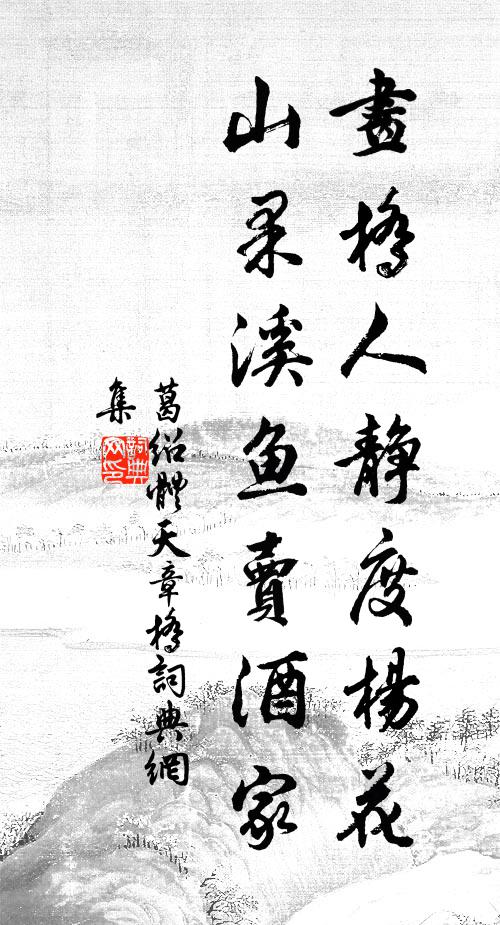 畫橋人靜度楊花
山果溪魚賣酒家
葛紹體天章橋詞典網
集
詞典
网印